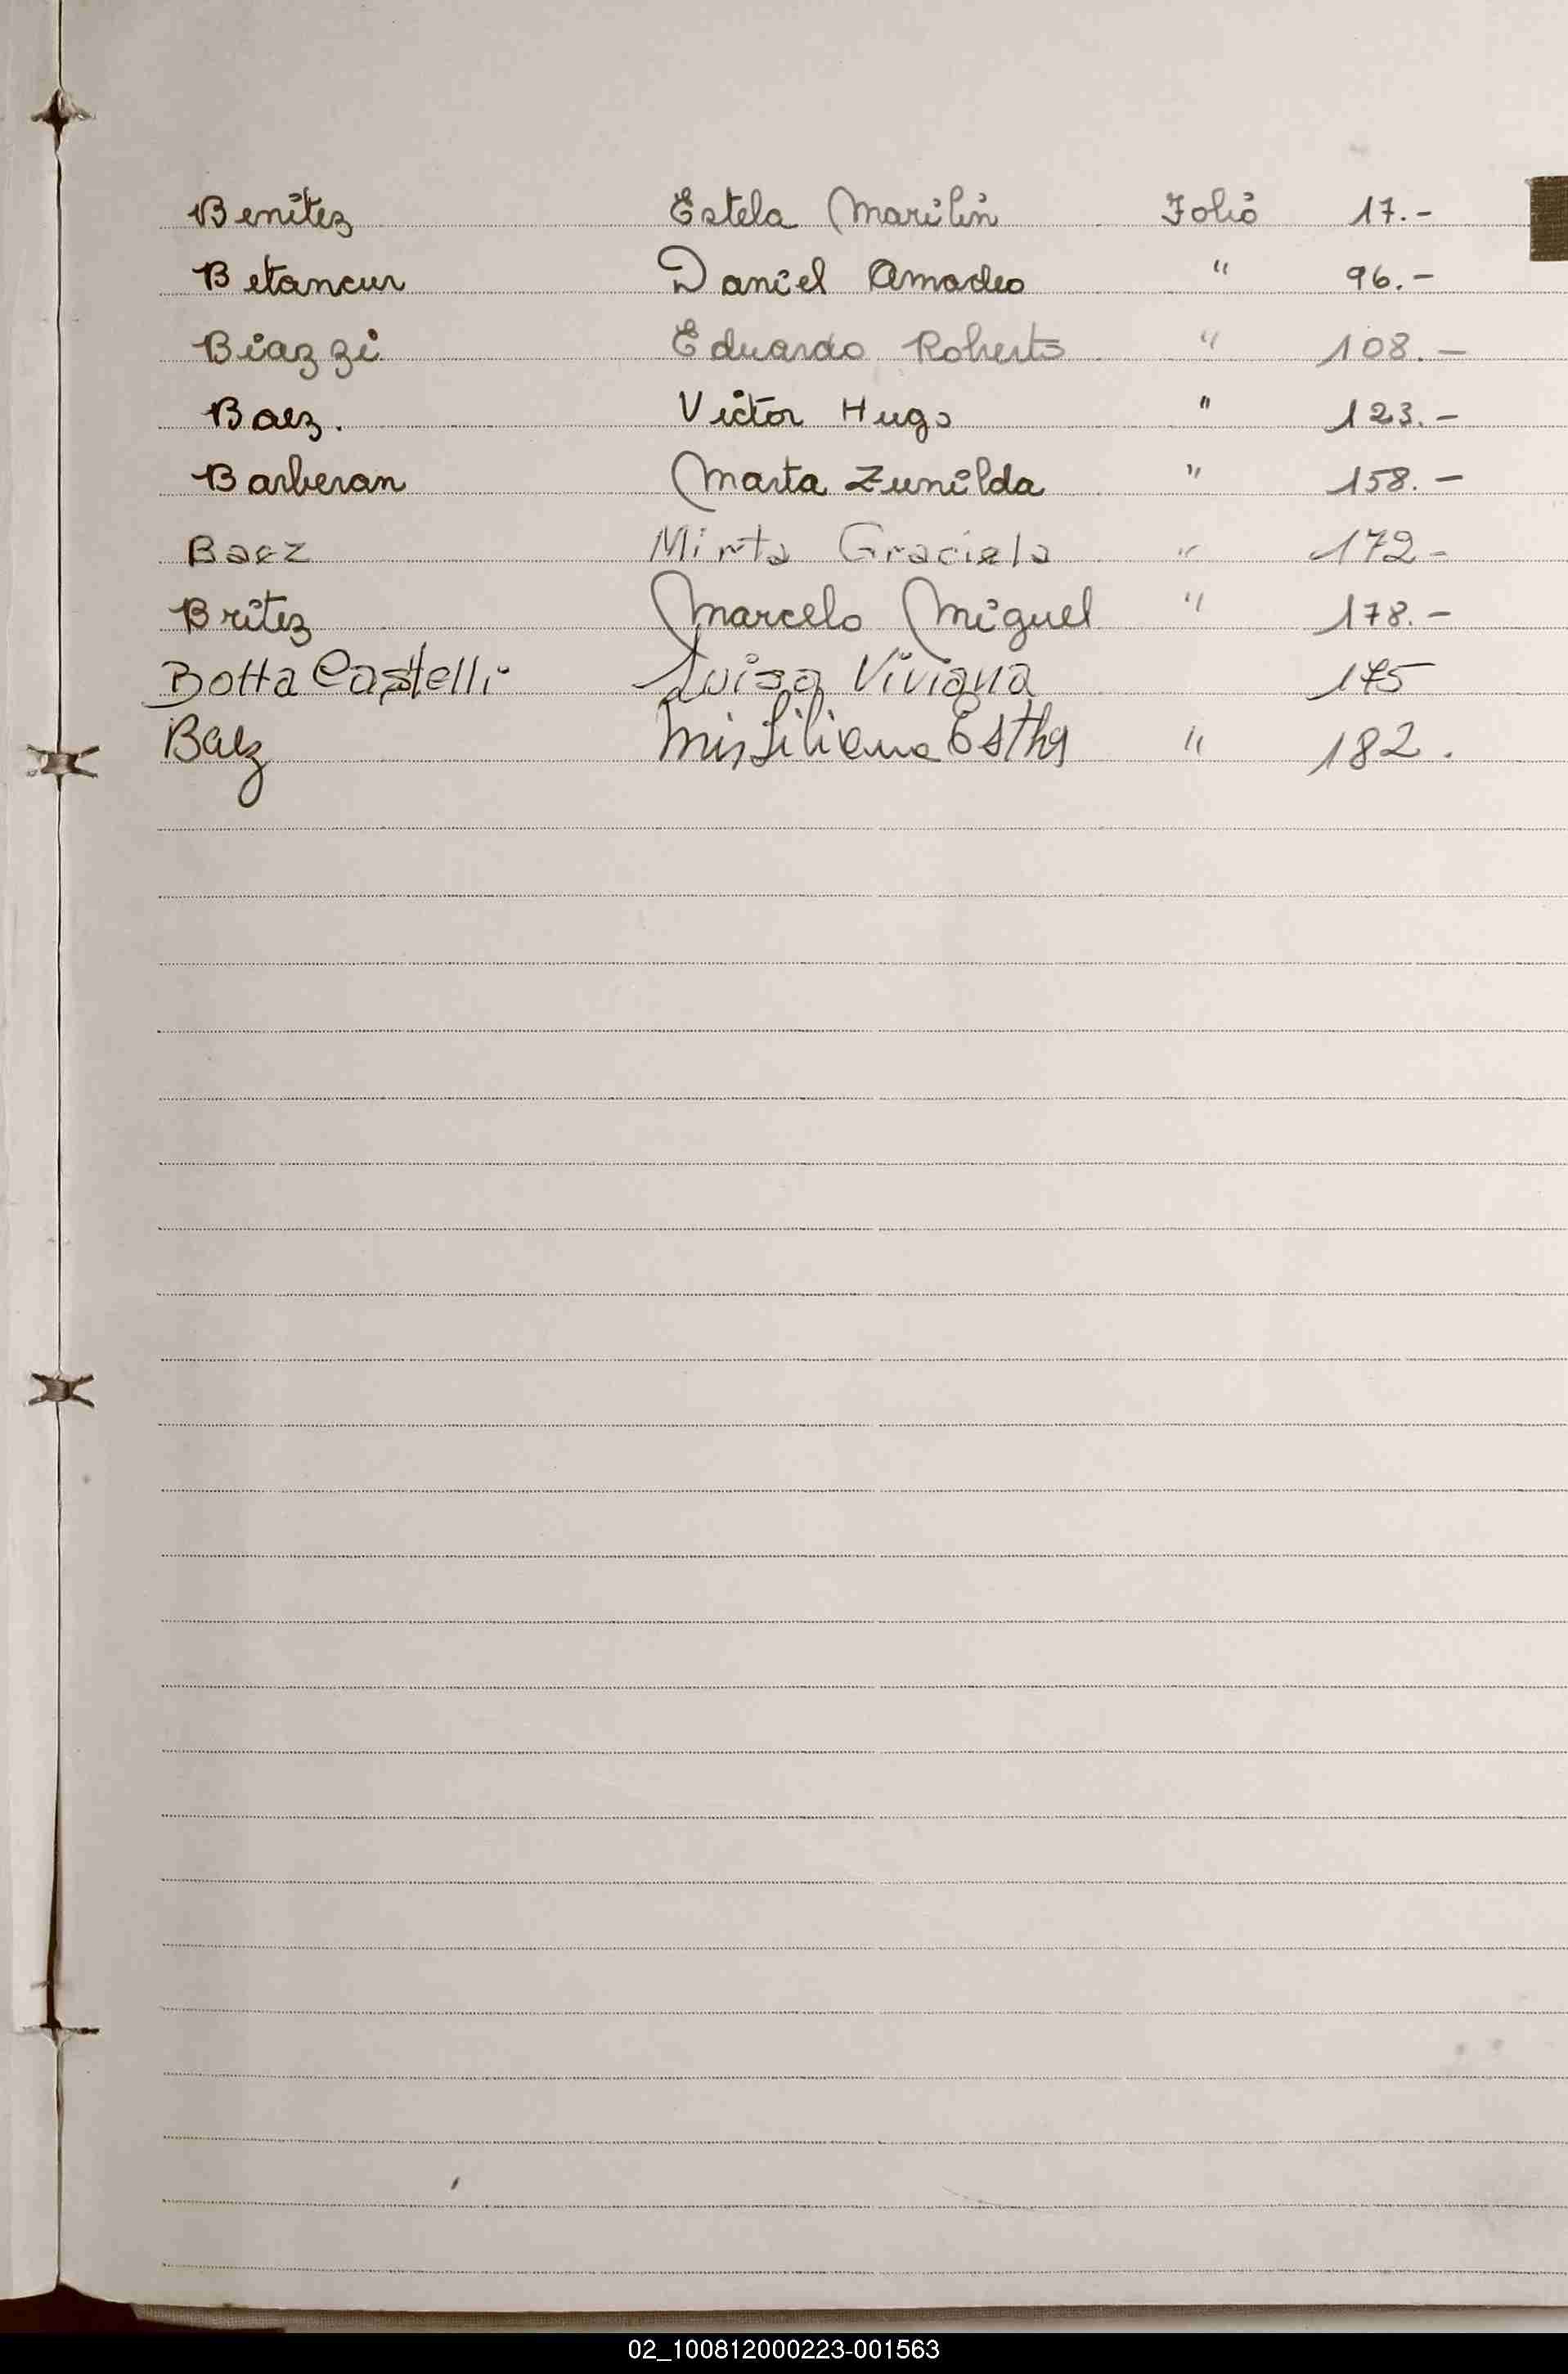 Benitez Estela Marilin Folio 17.-
Betancur Daniel Amadeo " 96.-
Biazzi Eduardo Roberto " 108.-
Baez. Victor Hugo " 123.-
Barberan Marta Zunilda " 158.-
Baez Mirta Graciela " 172-
Britez Marcelo Miguel " 178.-
Botta Castelli Luisa Viviana 175
Baez " 182.
02_100812000223-001563